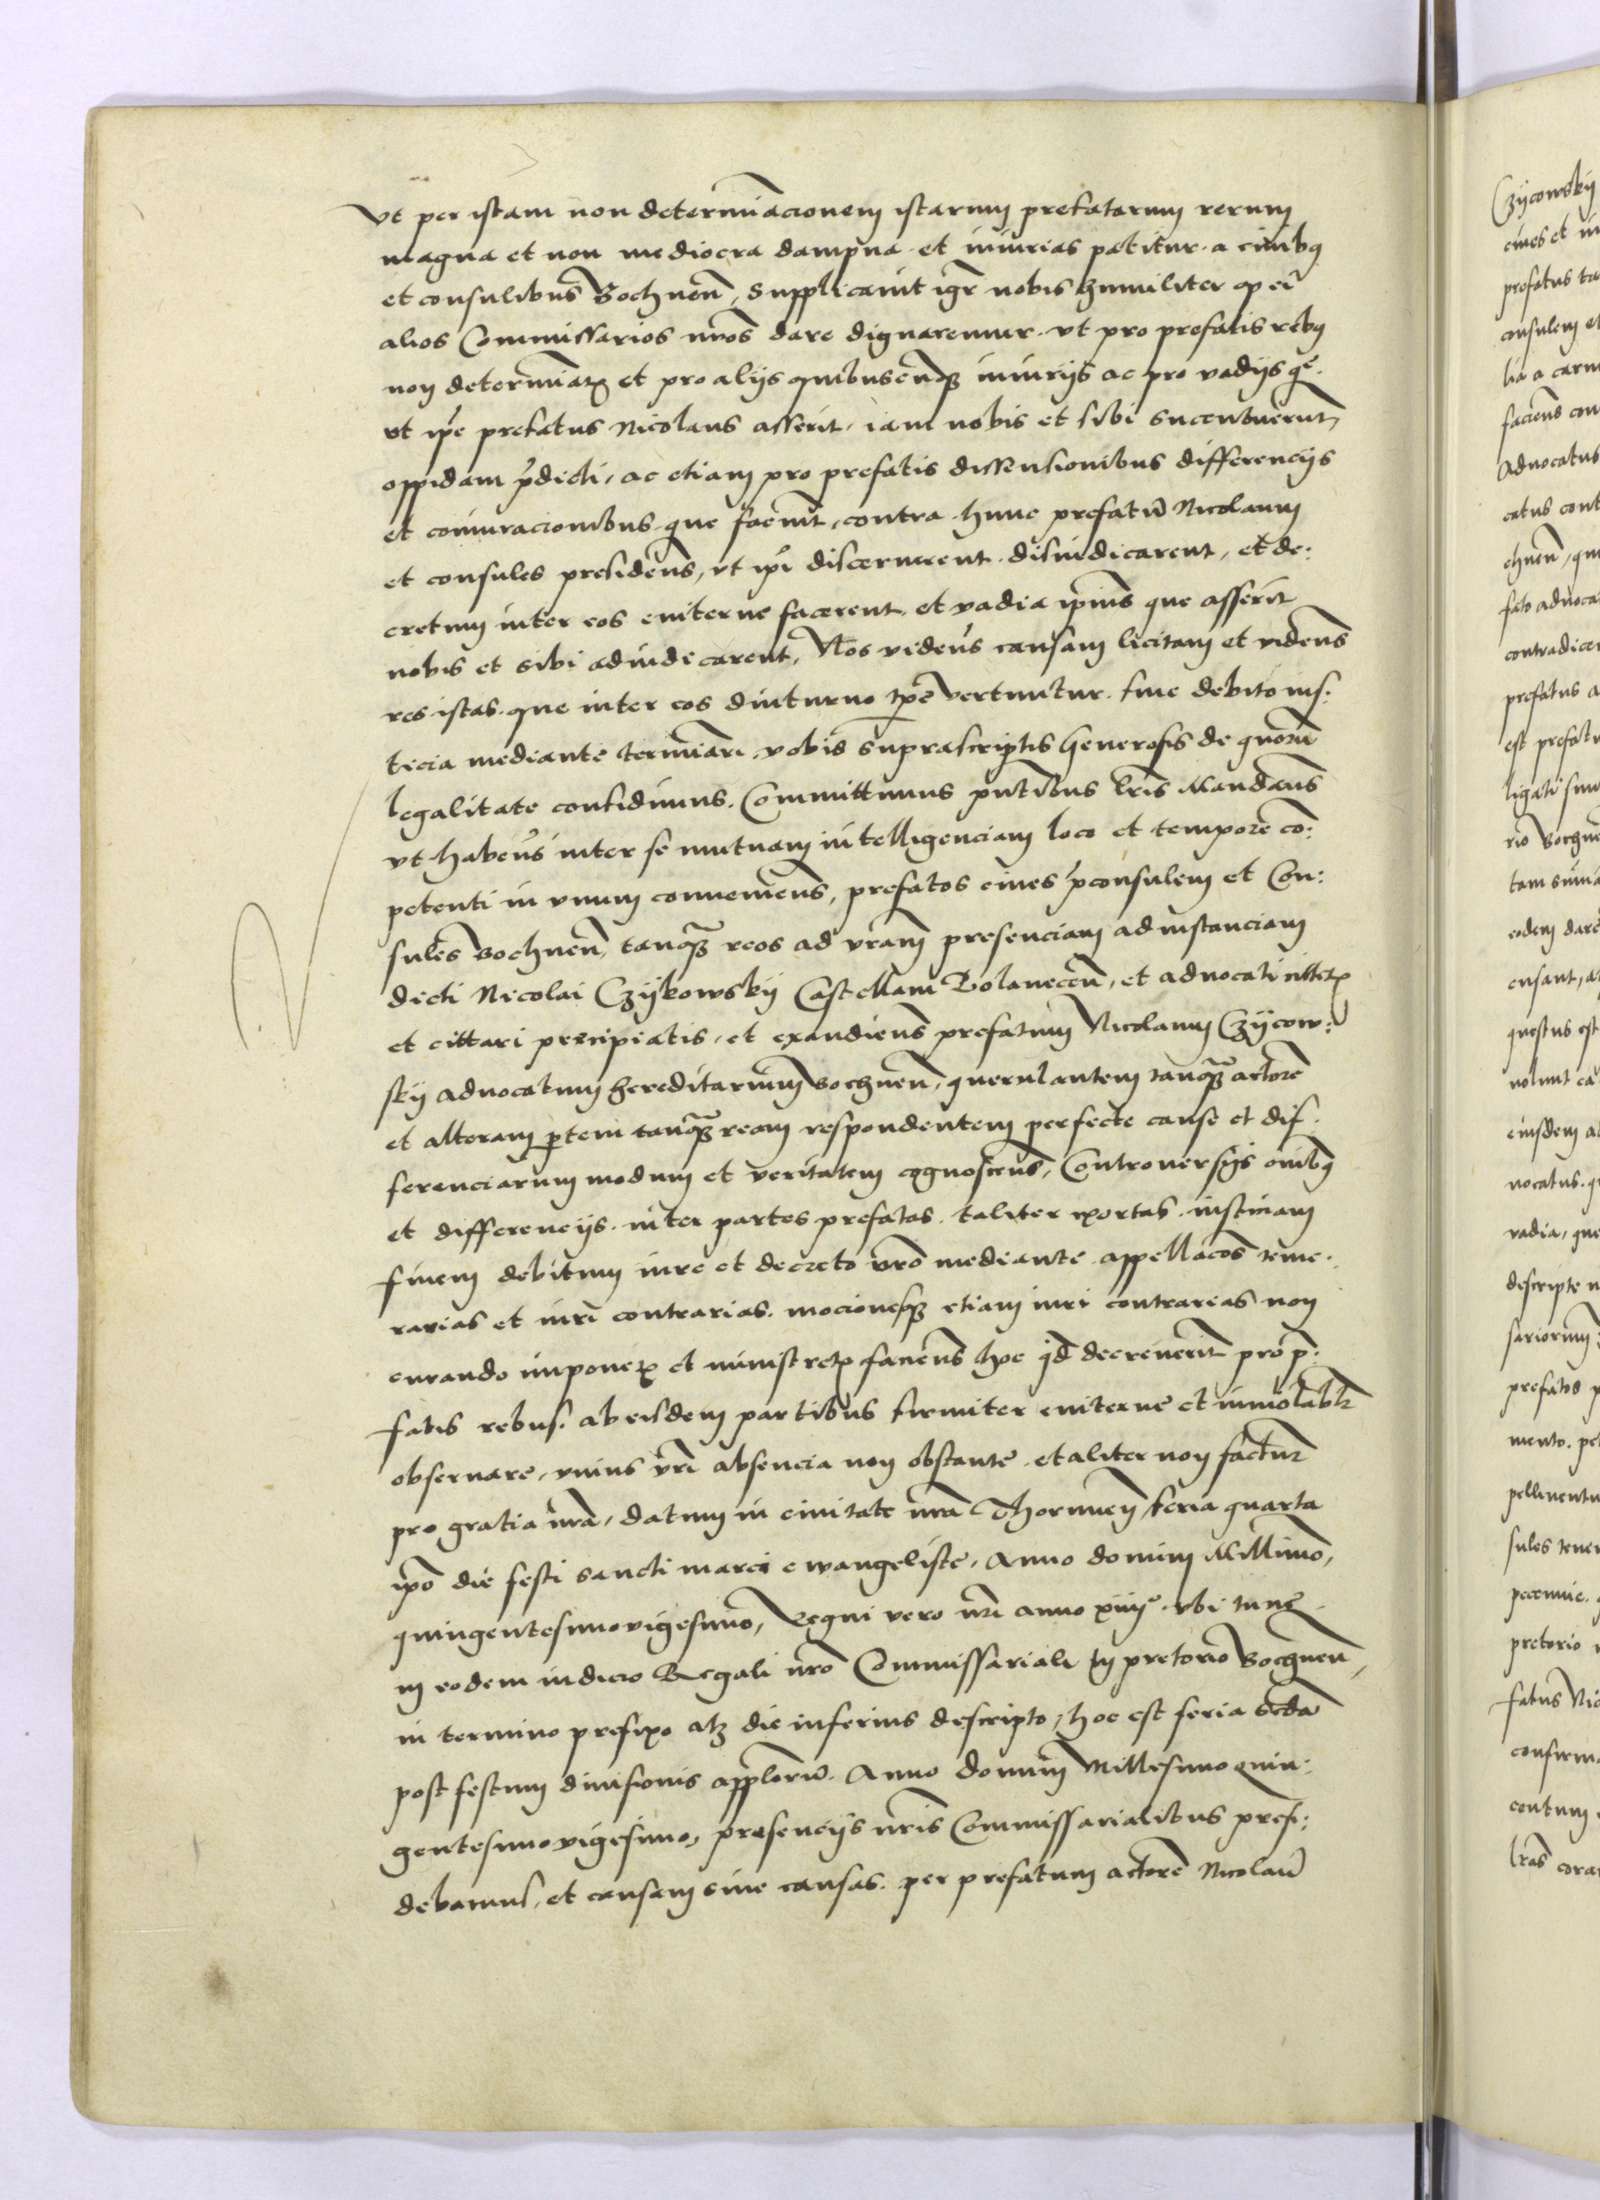 vt per istam non determinacionem istarum prefatarum rerum
magna et non mediocra dampna et iniurias patitur a ciuibus
et consulibus Bochnen, supplicauit igr nobis humiliter
alios Commissarios nros dare dignaremur vt pro prefatis rebus
non determinatis et pro alijs quibuscunque iniurijs ac pro vadijs
vt ipse prefatus Nicolaus asserit iam nobis et sibi succubuerunt
oppidani predicti, ac etiam pro prefatis dissensionibus differencijs
et coniuracionibus que fuerunt contra hunc prefatum Nicolaum
et consules presidens, vt ipsi discernerent disiudicarent, et de:
cretum inter eos euiterne facerent et vadia ipsius que asserit
nobis et sibi adiudicarent, Nos videns causam licitam et videns
res istas que inter eos diuturno tpe vertuntur sine debito ius.
ticia mediante terminari vobis suprascriptis Generosis de quorum
legalitate confidimus. Committimus pntibus lris Mandans
vt habens inter se mutuam intelligenciam loco et tempore co:
petenti in vnum conueniens, prefatos ciues proconsulem et Con:
sules Bochnen, tanquam reos ad vram presenciam ad instanciam
dicti Nicolai Czijkowskij Castellani Polanecen, et aduocati
et cittari precipiatis, et exaudiens prefatum Nicolaum Czijcow:
skij aduocatum hereditarium Bochnen, querulantem tanquam actorem
et alteram partem tanquam ream respondentem perfecte cause et dif
ferenciarum modum et veritatem cognoscens, Controuersijs omibus
et differencijs inter partes prefatas taliter exortas
finem debitum iure et decreto vro mediante appellacos teme.
rarias et iuri contrarias mocionesque etiam iuri contrarias non
curando imponere et ministrare faciens hoc qd decreuerit pro p:
fatis rebus ab eisdem partibus firmiter euiterne et inuiolabiliter
obseruare, vnius vri absencia non obstante et aliter non factur
pro gratia nra, datum in ciuitate nra Thorunen, feria quarta
ipso die festi sancti marci ewangeliste, Anno domini Millimo,
quingentesimovigesimo, Regni vero nri anno xiiij vbi tunc
in eodem iudicio Regali nro Commissariali in pretorio Bochnen,
in termino prefixo atque die inferius descripto, hoc est feria scda
post festum diuisionis applorum Anno domini Millesimo quin:
gentesimovigesimo, presencijs nris Commissarialibus presi:
debamus, et causam siue causas per prefatum actorem Nicolaum
Czijcowskij
ciues et
prefatus
consulem et
faciens
Aduocatus
catus
fato
contradicer
prefatus
est
ligati
rio
tam
eodem dare
questus est
nolunt
eiusdem
nocatus
vadia, que
descripte
sariorum
prefatos
mento
sules tene
pecunie
pretorio
fatus
confirm
centum
lras